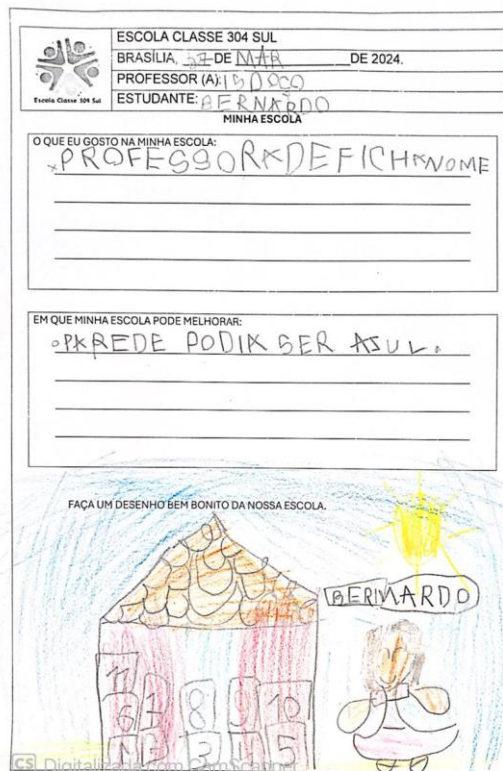 ESCOLA CLASSE 304 SUL
BRASÍLIA, 27 DE MAR DE 2024.
PROFESSOR (A):
ESTUDANTE: BERNARDO
Escola Classe 304 Sul
MINHA ESCOLA
O QUE EU GOSTO NA MINHA ESCOLA:
PROFESSORA DE FICHA NOME
EM QUE MINHA ESCOLA PODE MELHORAR:
PAREDE PODIA SER AZUL.
FAÇA UM DESENHO BEM BONITO DA NOSSA ESCOLA.
BERNARDO
11
6 7 8 9 10
1 2 3 4 5
CS Digitalizada com CamScanner